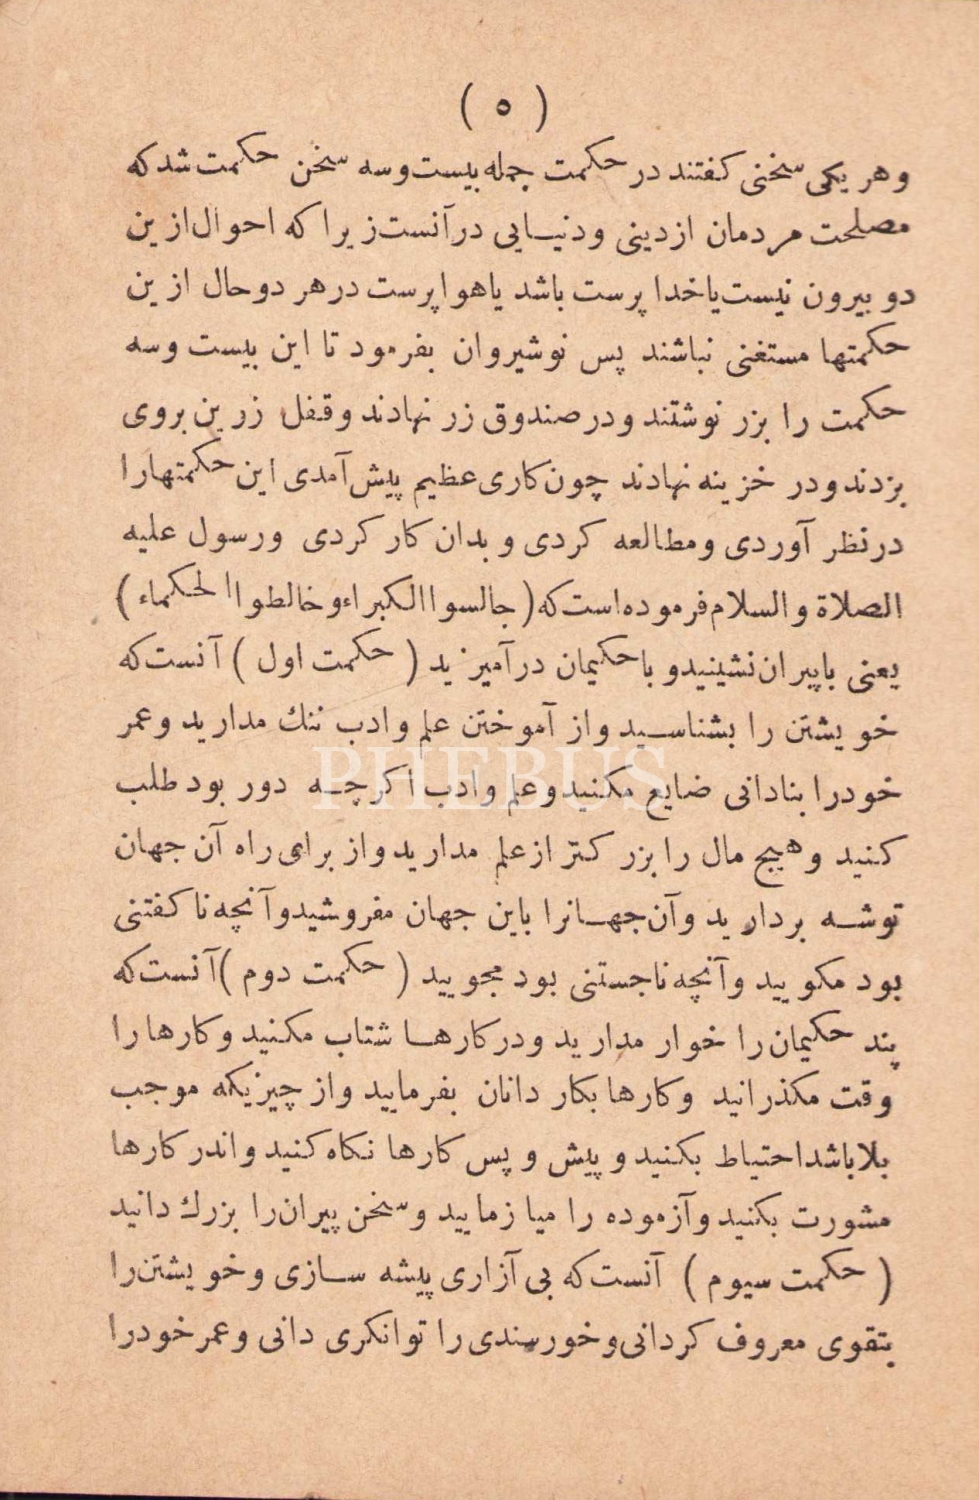 ( ٥ )
وهر یکی سخنی کفتند در حکمت جمله بیست وسه سخن حکمت شد که
مصلحت مردمان ازدینی ودنیایی درآنست زیرا که احوال ازین
دو بیرون نیست یاخدا پرست باشد یاهوا پرست درهر دوحال ازین
حکمتها مستغنی نباشند پس نوشیروان بفرمود تا این بیست وسه
حکمت را بزر نوشتند ودرصندوق زر نهادند وقفل زرین بروی
بزدند ودر خزینه نهادند چون کاری عظیم پیش آمدی این حکمتهارا
درنظر آوردی ومطالعه کردی و بدان کار کردی ورسول علیه
الصلاة والسلام فرموده است که (جالسوا الکبراء وخالطوا الحکماء)
یعنی باپیران نشینید و باحکیمان درآمیزید ( حکمت اول ) آنست که
خویشتن را بشناسید واز آموختن علم وادب ننك مدارید وعمر
خودرا بنادانی ضایع مکنید وعلم وادب اکرچه دور بود طلب
کنید وهیچ مال را بزرکتر ازعلم مدارید واز برای راه آن جهان
توشه بردارید وآن جهانرا باین جهان مفروشید وآنچه ناکفتنی
بود مکویید وآنچه ناجستنی بود مجویید ( حکمت دوم ) آنست که
پند حکیمان را خوار مدارید ودرکارها شتاب مکنید وکارها را
وقت مکذرانید وکارها بکار دانان بفرمایید واز چیزیکه موجب
بلا باشد احتیاط بکنید و پیش و پس کارها نکاه کنید واندر کارها
مشورت بکنید وآزموده را میازمایید وسخن پیران را بزرك دانید
( حکمت سیوم ) آنست که بی آزاری پیشه سازی وخویشتن را
بتقوی معروف کردانی وخورسندی را توانکری دانی وعمر خودرا
PHEBUS